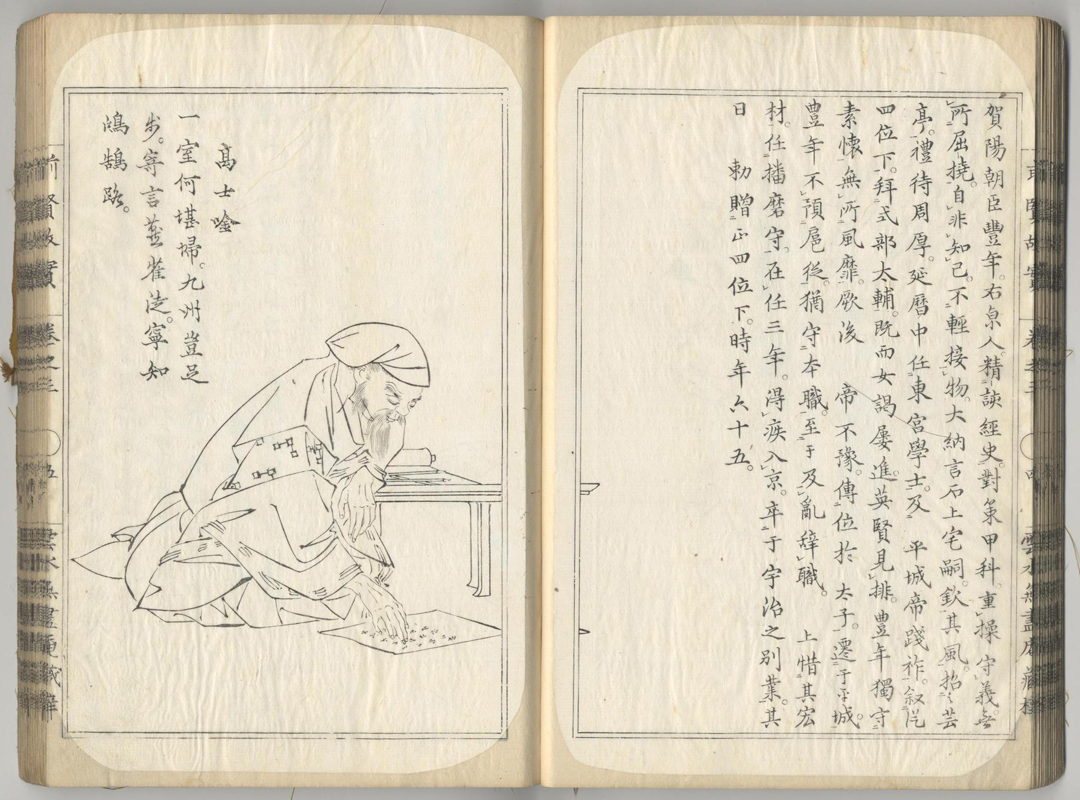 賀陽朝臣豐年。右京人。精詼經史。對策甲科。重操守義。無
所屈撓。自非知己。不輕接物。大納言石上宅嗣。欽其風。招芸
亭。禮待周厚。延曆中任東宮學士。及 平城帝踐祚。叙從
四位下。拜式部大輔。既而女謁屢進。英賢見排。豊年獨守
素懷。無所風靡。厥後 帝不豫。傳位於 太子。遷于平城。
豊年不預扈從。猶守本職。至于及亂辭職。 上惜其宏
材。任播磨守。在任三年。得疾入京。卒于宇治之別業。其
日 勅贈正四位下。時年六十五。
高士唫
一室何堪掃。九州豈足
步。寄言燕雀徒。寧知
鴻鵠路。
前賢故實 卷之三 五 雲水無盡
前賢故實 卷之三 四 雲水無盡庵藏